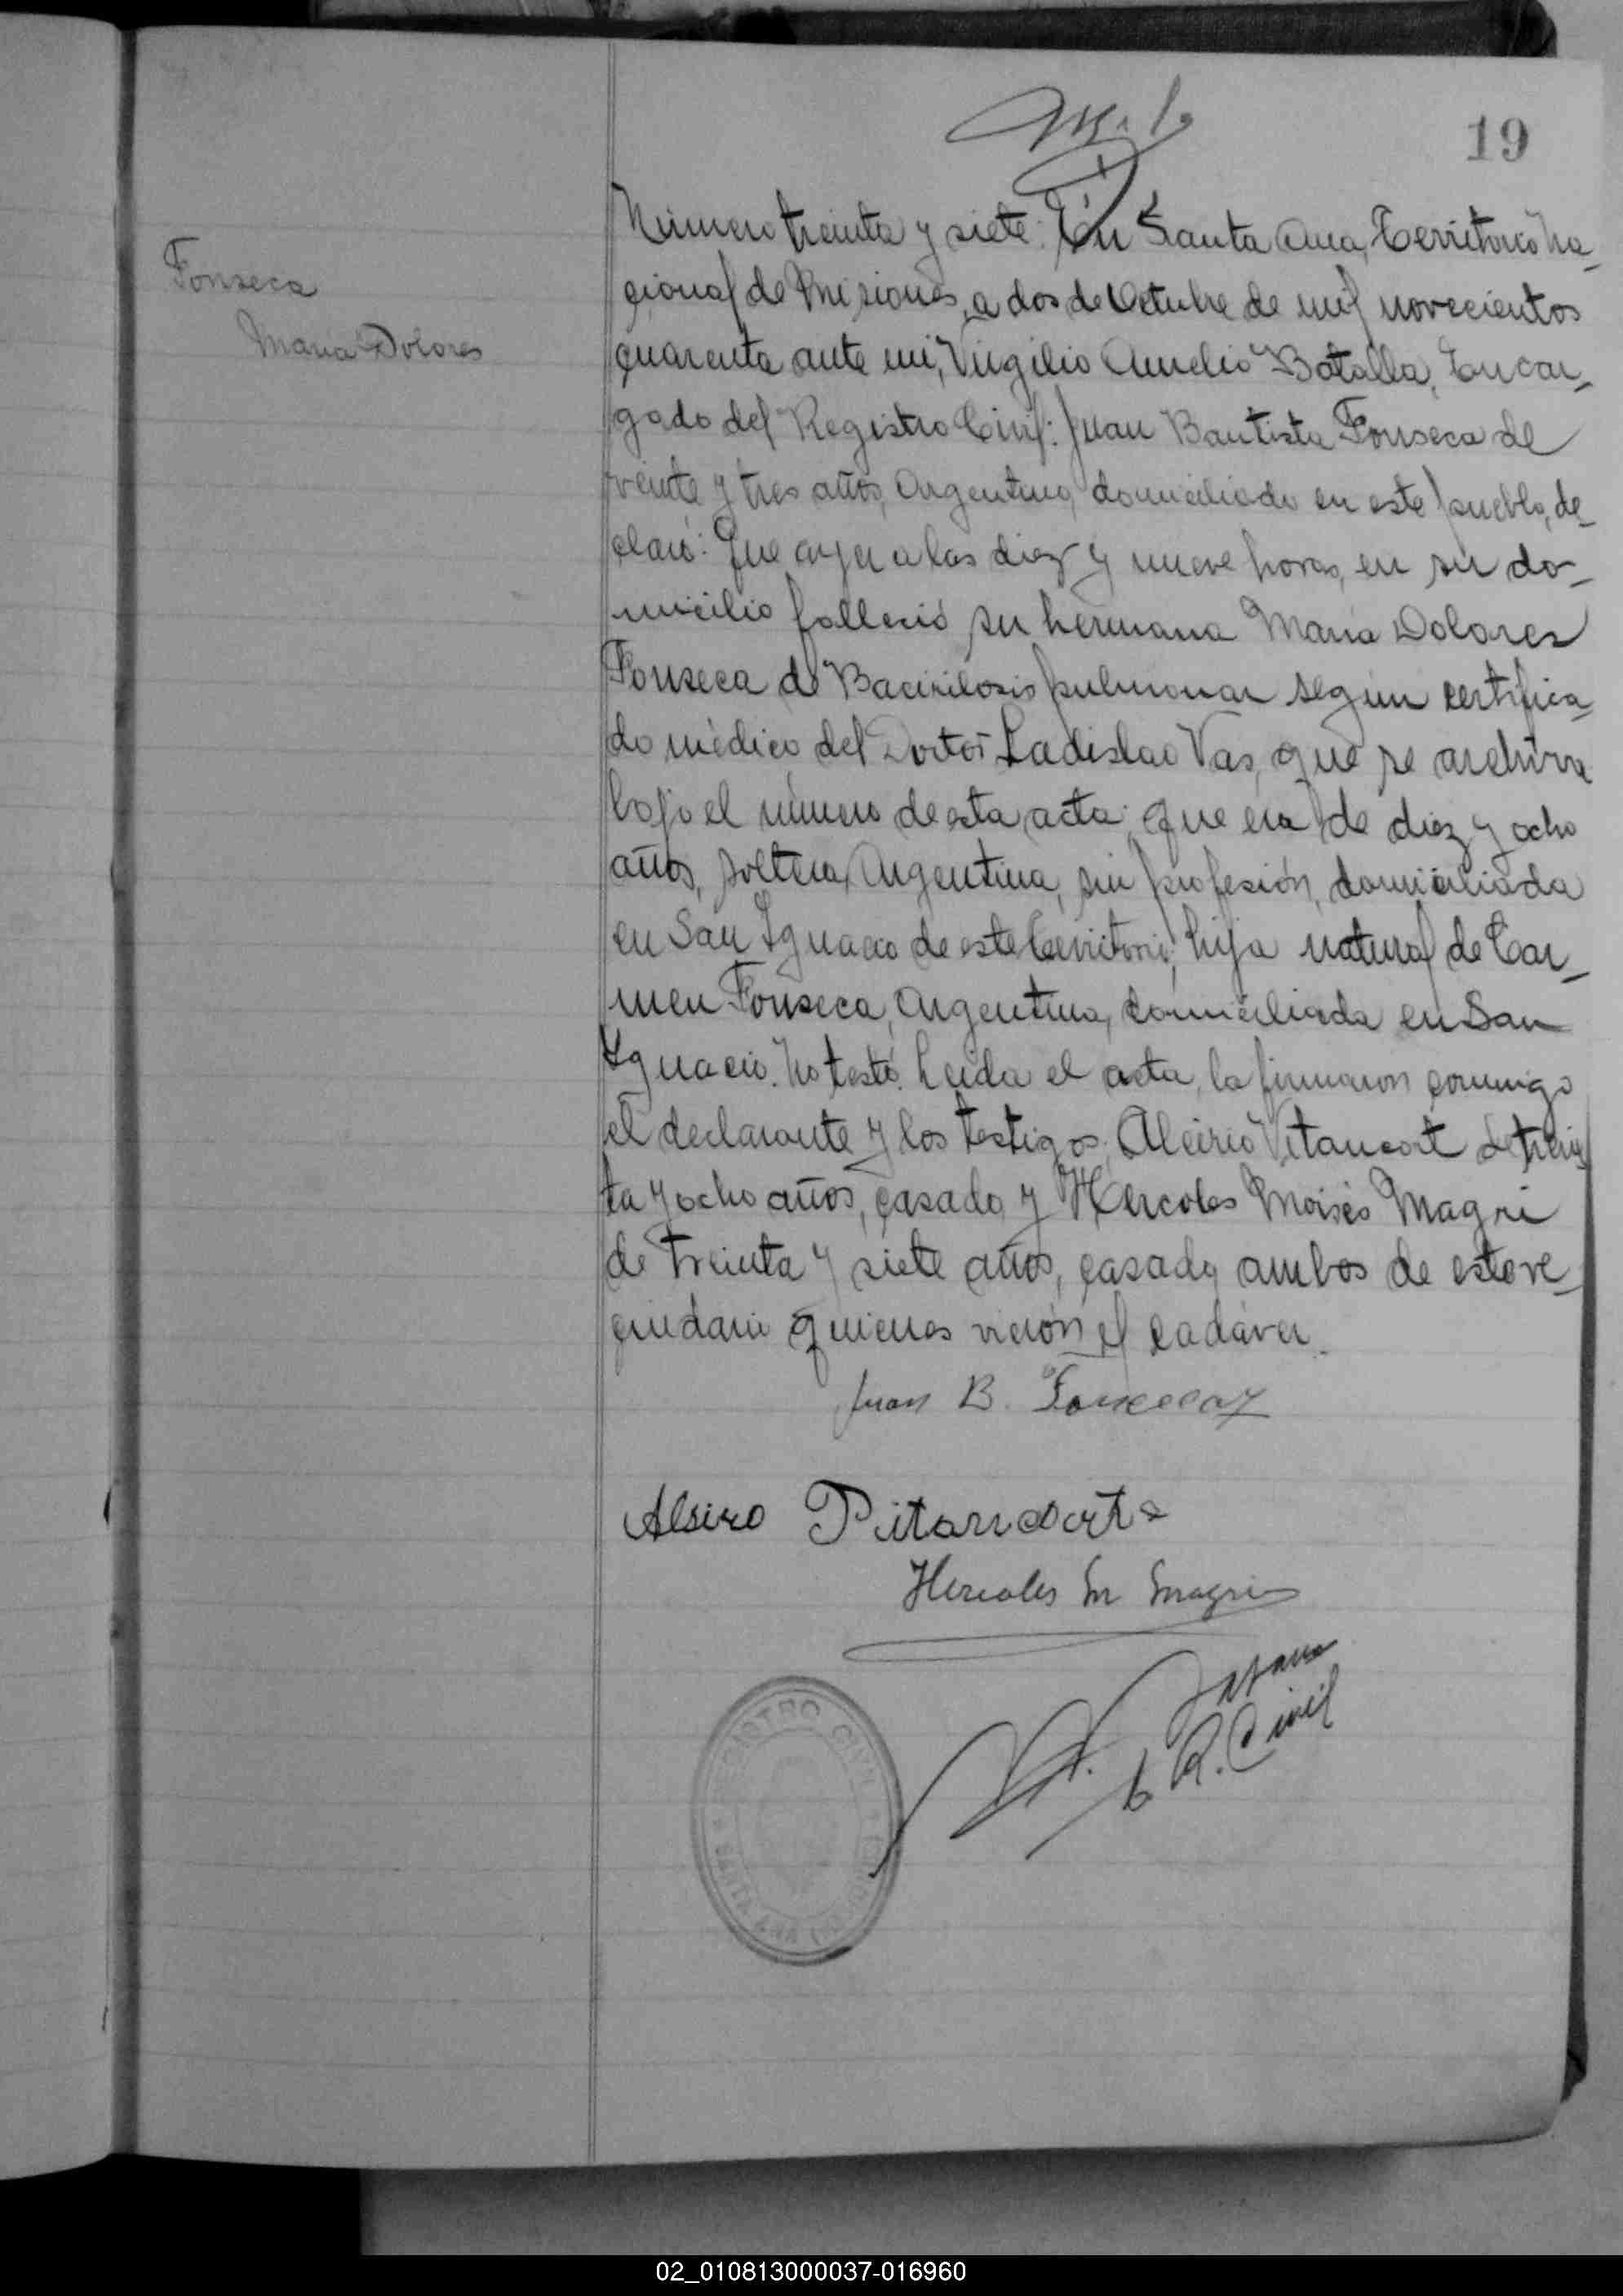 19
Fonseca
María Dolores
Número treinta y siete: En Santa Ana, Territorio Na_
cional de Misiones, a dos de Octubre de mil novecientos
cuarenta ante mi, Virgilio Aurelio Batalla, Encar_
gado del Registro Civil: Juan Bautista Fonseca de
veinte y tres años, Argentino, domiciliado en este pueblo, de_
claró: Que ayer a las diez y nueve horas, en su do_
micilio falleció su hermana María Dolores
Fonseca de Bacirilosis pulmonar según certifica_
do médico del Doctor Ladislao Vas, que se archiva
bajo el número de esta acta; que era de diez y ocho
años, soltera, Argentina, sin profesión, domiciliada
en San Ignacio de este Territorio, hija natural de Car_
men Fonseca, Argentina, domiciliada en San
Ignacio. No testó. Leída el acta, la firmaron conmigo
el declarante y los testigos: Alcirio Vitancort de trein
ta y ocho años, casado y Hércoles Moisés Magri
de treinta y siete años, casado, ambos de este ve_
cindario quienes vieron el cadáver.
Juan B.
Alsiro Pitancort
Hercoles M Magri
R. Civil
REGISTRO CIVIL
SANTA ANA
02_010813000037-016960